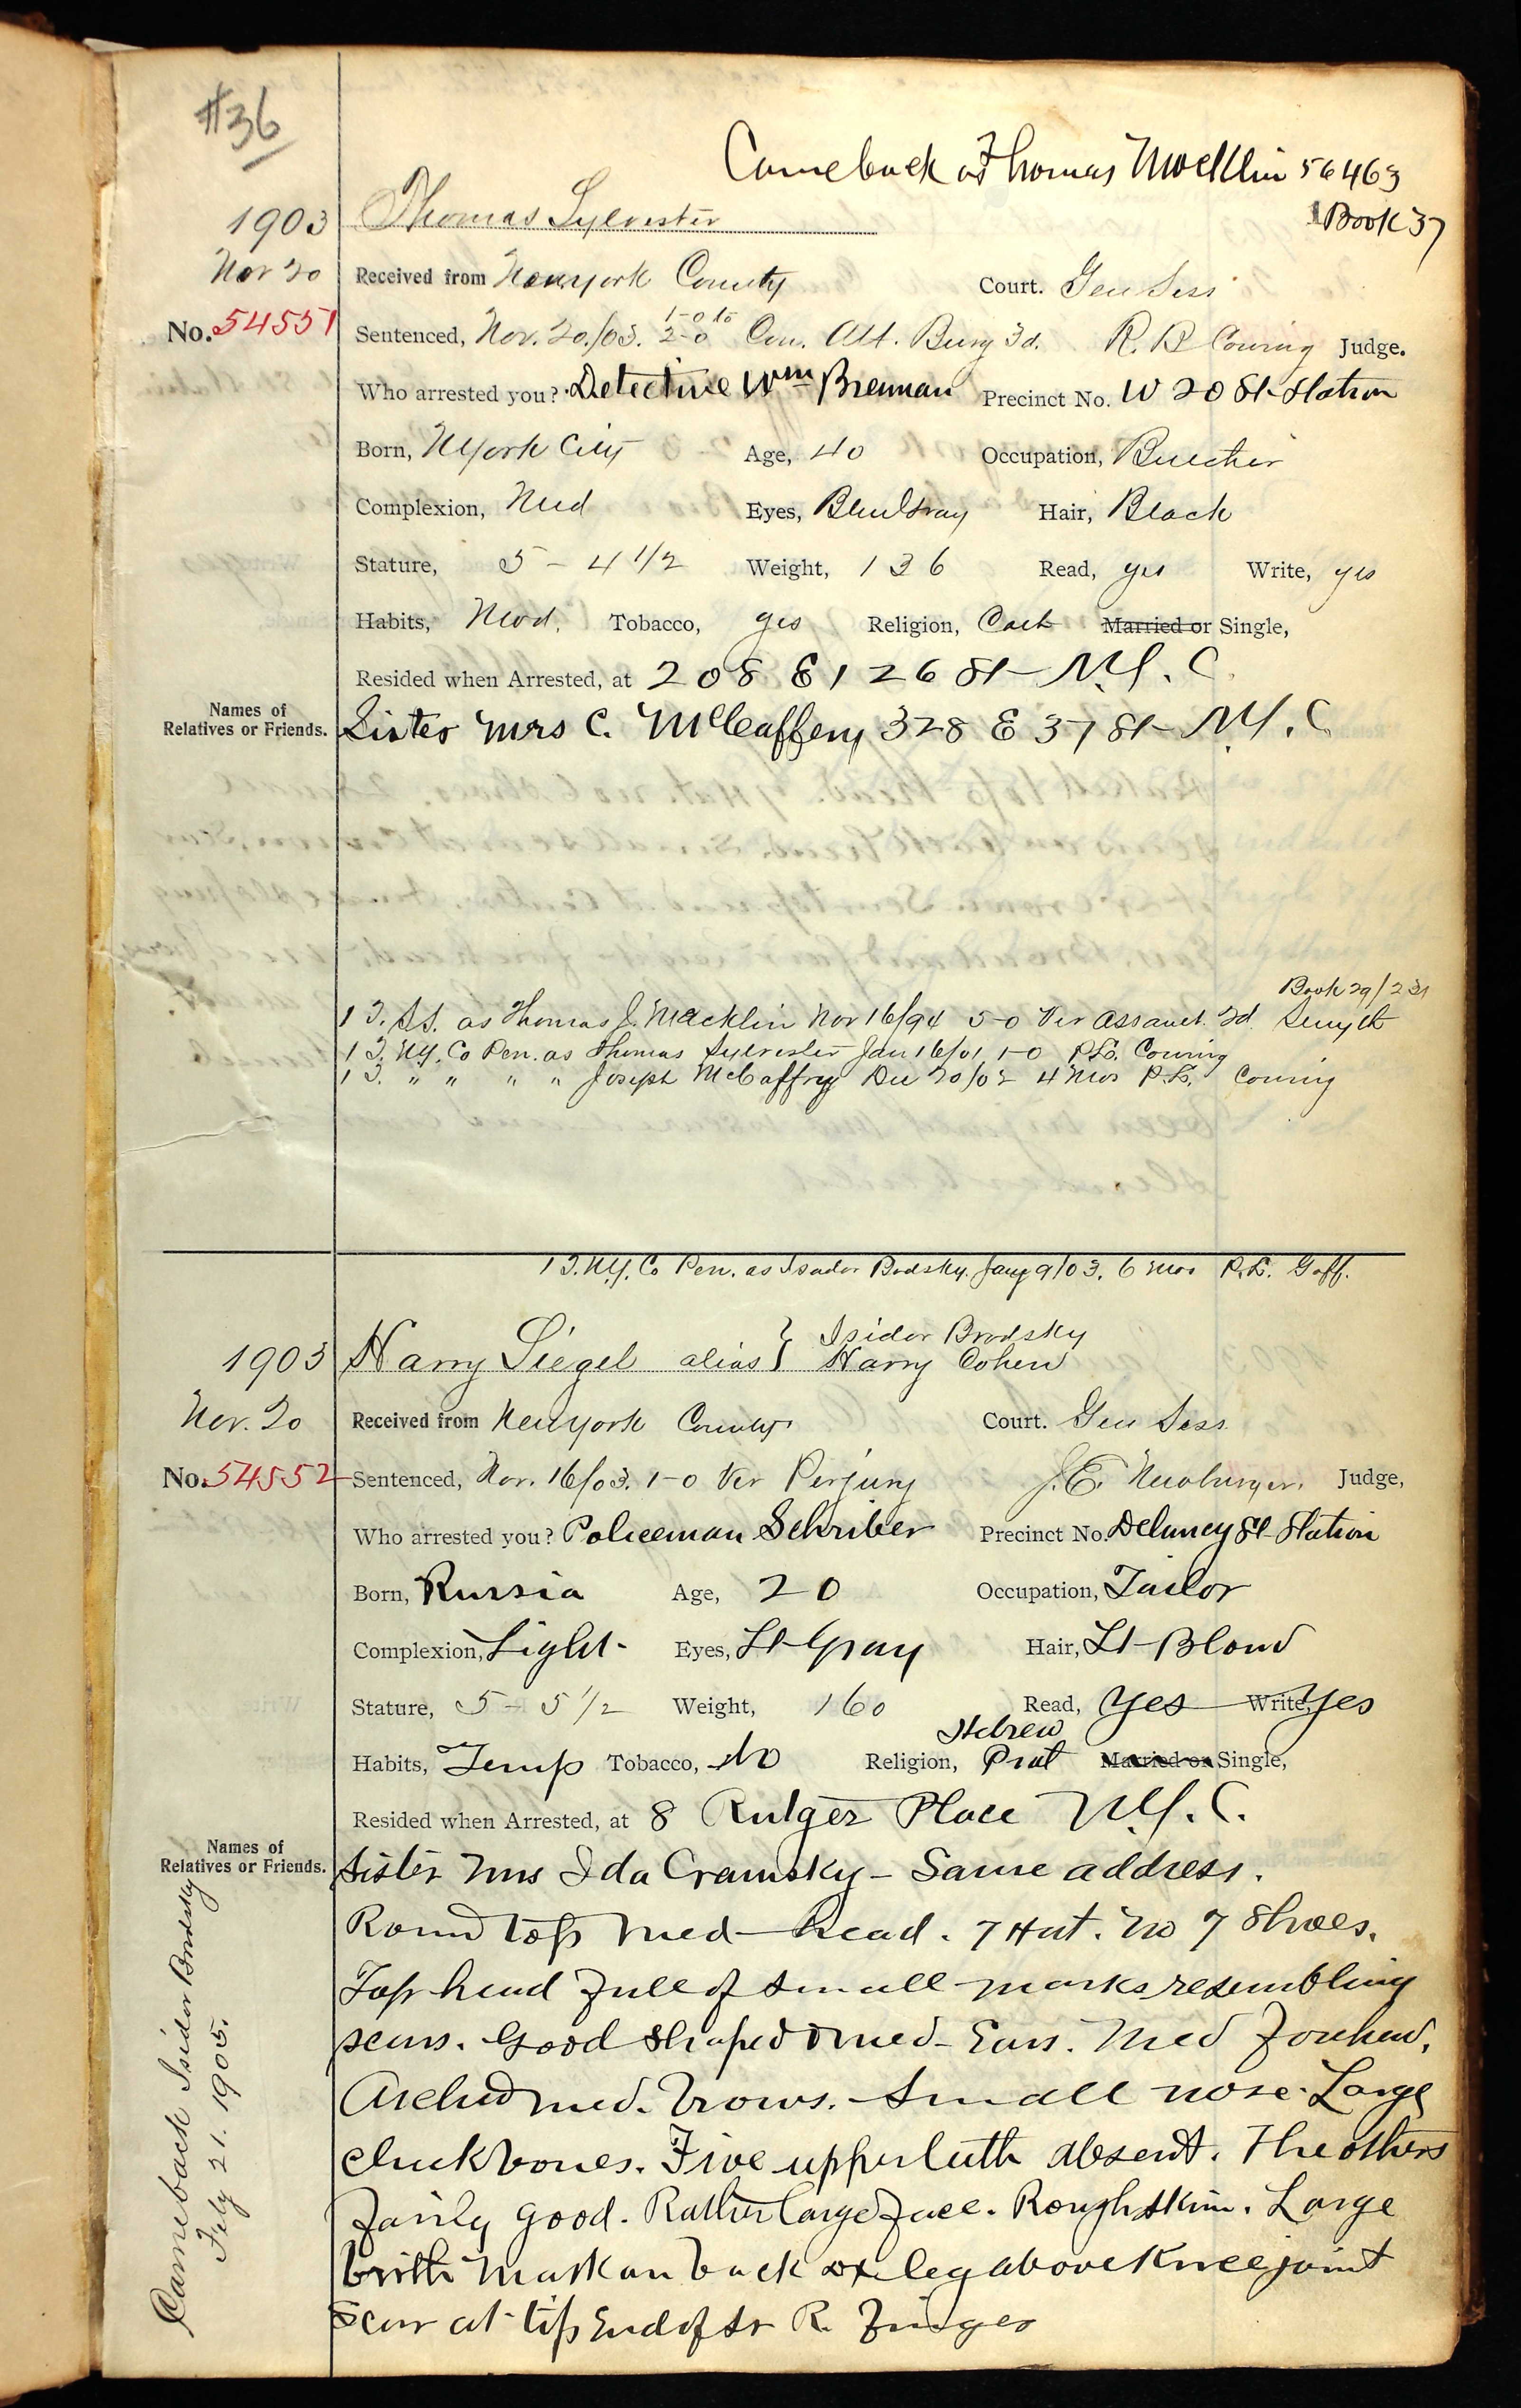 #36
Came back as Thomas Macklin 56463
Book 37
1903 Thomas Sylvester
Nov 20 Received from New york County Court. Gen Sess
No. 54551 Sentenced, Nov. 20/03. 1-0 to 2-0 Con. Att. Burg 3d. R. B Cowing Judge.
Who arrested you? Detective Wm Brennan Precinct No. W 20 St Station
Born, N York City Age, 40 Occupation, Butcher
Complexion, Med Eyes, Blue Gray Hair, Black
Stature, 5 - 4 1/2 Weight, 136 Read, yes Write, yes
Habits, Mod. Tobacco, yes Religion, Cath Married or Single,
Resided when Arrested, at 208 E 126 St N.Y.C.
Names of
Relatives or Friends. Sister Mrs C. McCaffery 328 E 37 St N.Y.C
Book 29/231
1 T. S.S. as Thomas J. Macklin Nov 16/94 5-0 Ver Assault 2d Smyth
1 T. N.Y. Co Pen. as Thomas Sylvester Jan 16/01 1-0 P.L. Cowing
1 T. " " " " Joseph McCaffrey Dec 20/02 4 Mos P.L. Cowing
1 T. N.Y. Co Pen. as Isador Brodsky. Jany 9/03. 6 Mos P.L. Goff.
1903 Harry Siegel alias } Isidor Brodsky
Harry Cohen
Nov. 20 Received from New york County Court. Gen Sess.
No. 54552 Sentenced, Nov. 16/03. 1-0 Ver Perjury J.E. Newburger. Judge,
Who arrested you? Policeman Schriber Precinct No. Delancy St Station
Born, Russia Age, 20 Occupation, Tailor
Complexion, Light- Eyes, Lt Gray Hair, Lt Blond
Stature, 5 - 5 1/2 Weight, 160 Read, Yes Write, Yes
Hebrew
Habits, Temp Tobacco, No Religion, Prot Married or Single,
Resided when Arrested, at 8 Rutger Place N.Y.C.
Names of
Relatives or Friends. Sister Mrs Ida Cramsky - Same address.
Round top med head. 7 Hat. No 7 Shoes.
Top head full of small marks resembling
scars. Good shaped med Ears. Med Forehead.
Arched med. brows. Small nose. Large
cheekbones. Five upper teeth absent. The others
fairly good. Rather large face. Rough skin. Large
birth mark on back of leg above Knee joint
Scar at tip End of R. Finger
Came back Isidor Brodsky
July 21. 1905.